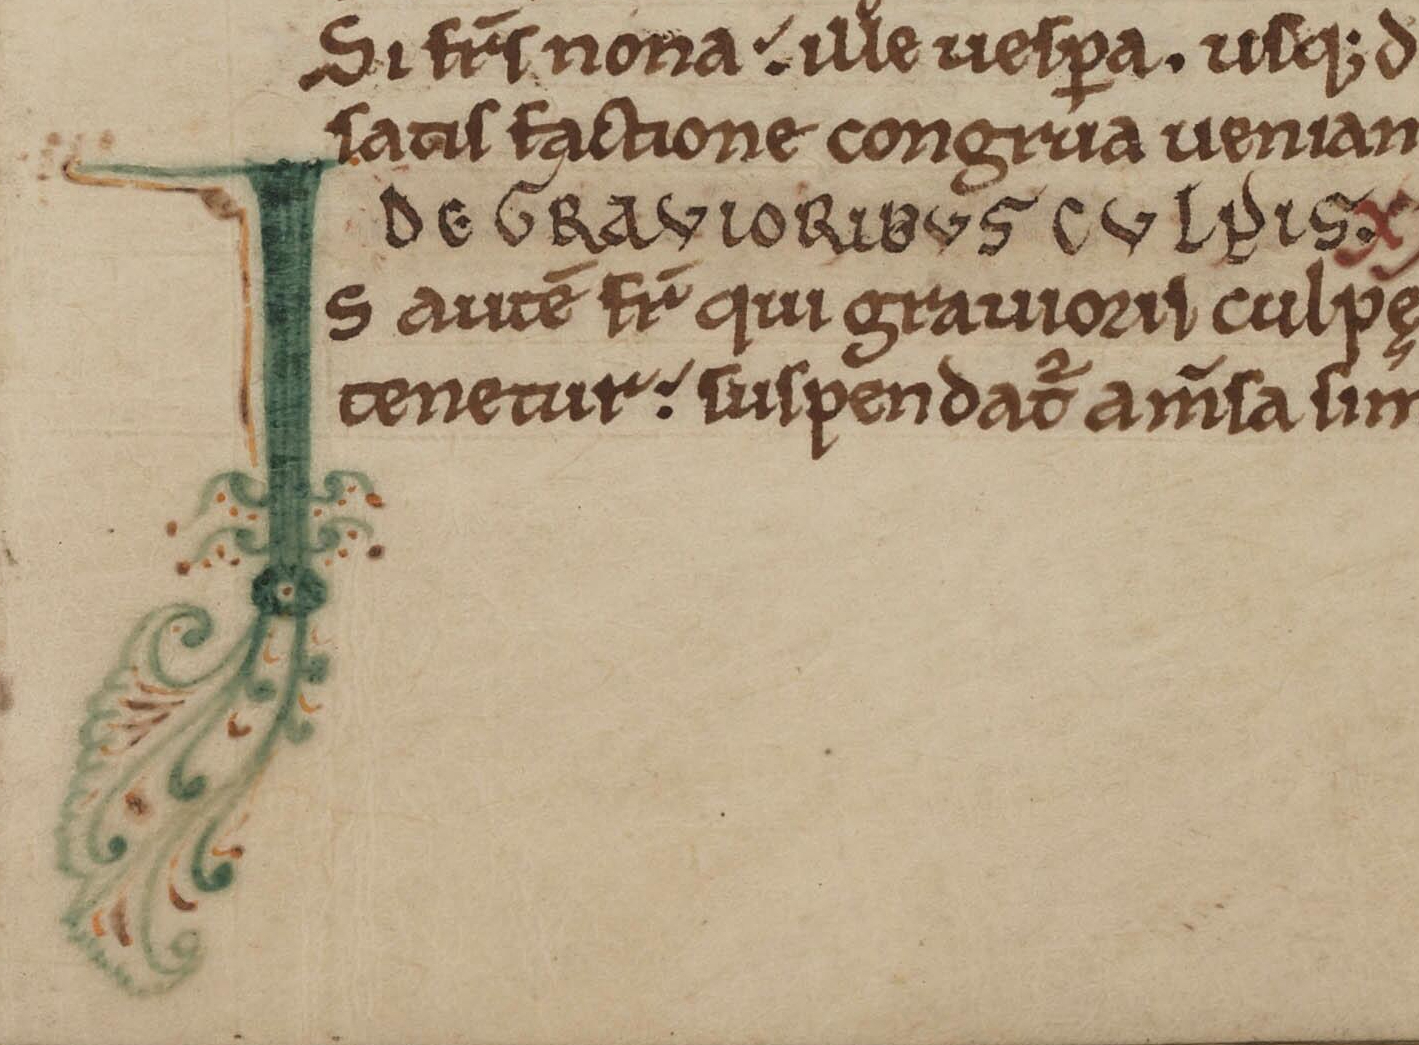 Si fr̄s nona ⁏ ille uesp̱a. usq; d
satis factione congrua uenian
DE GRAVIORIBUS CULPIS. x
Is autē fr̄ qui grauiorū culpę
tenetur ⁏ suspendat᷑ a m̄sa sim